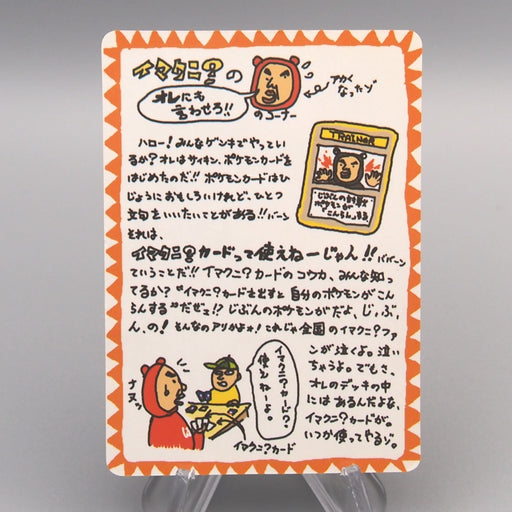 イマクニ?の
オレにも
言わせろ!!
のコーナー
アカく
なったゾ
ハロー!みんなゲンキでやってい
るか?オレはサイキン、ポケモンカードを
はじめたのだ!!ポケモンカードはひ
じょうにおもしろいけれど、ひとつ
文句をいいたいことがある!!バーン
それは、
イマクニ?カードって使えねーじゃん!!ババーン
ていうことだ!!イマクニ?カードのコウカ、みんな知っ
てるか?“イマクニ?カードを出すと自分のポケモンがこん
らんする”だぜェ!?じぶんのポケモンがだよ、じ、ぶ、
ん、の!そんなのアリかよォ!これじゃ全国のイマクニ?ファ
ンが泣くよ。泣い
ちゃうよ。でもさ、
オレのデッキの中
にはあるんだよな、
イマクニ?カードが。
いつか使ってやるゾ。
TRAINER
じぶんの対戦
ポケモンが
「こんらん」する
イマクニ?カード?
使えねーよ。
ナヌッ
イマクニ?カード